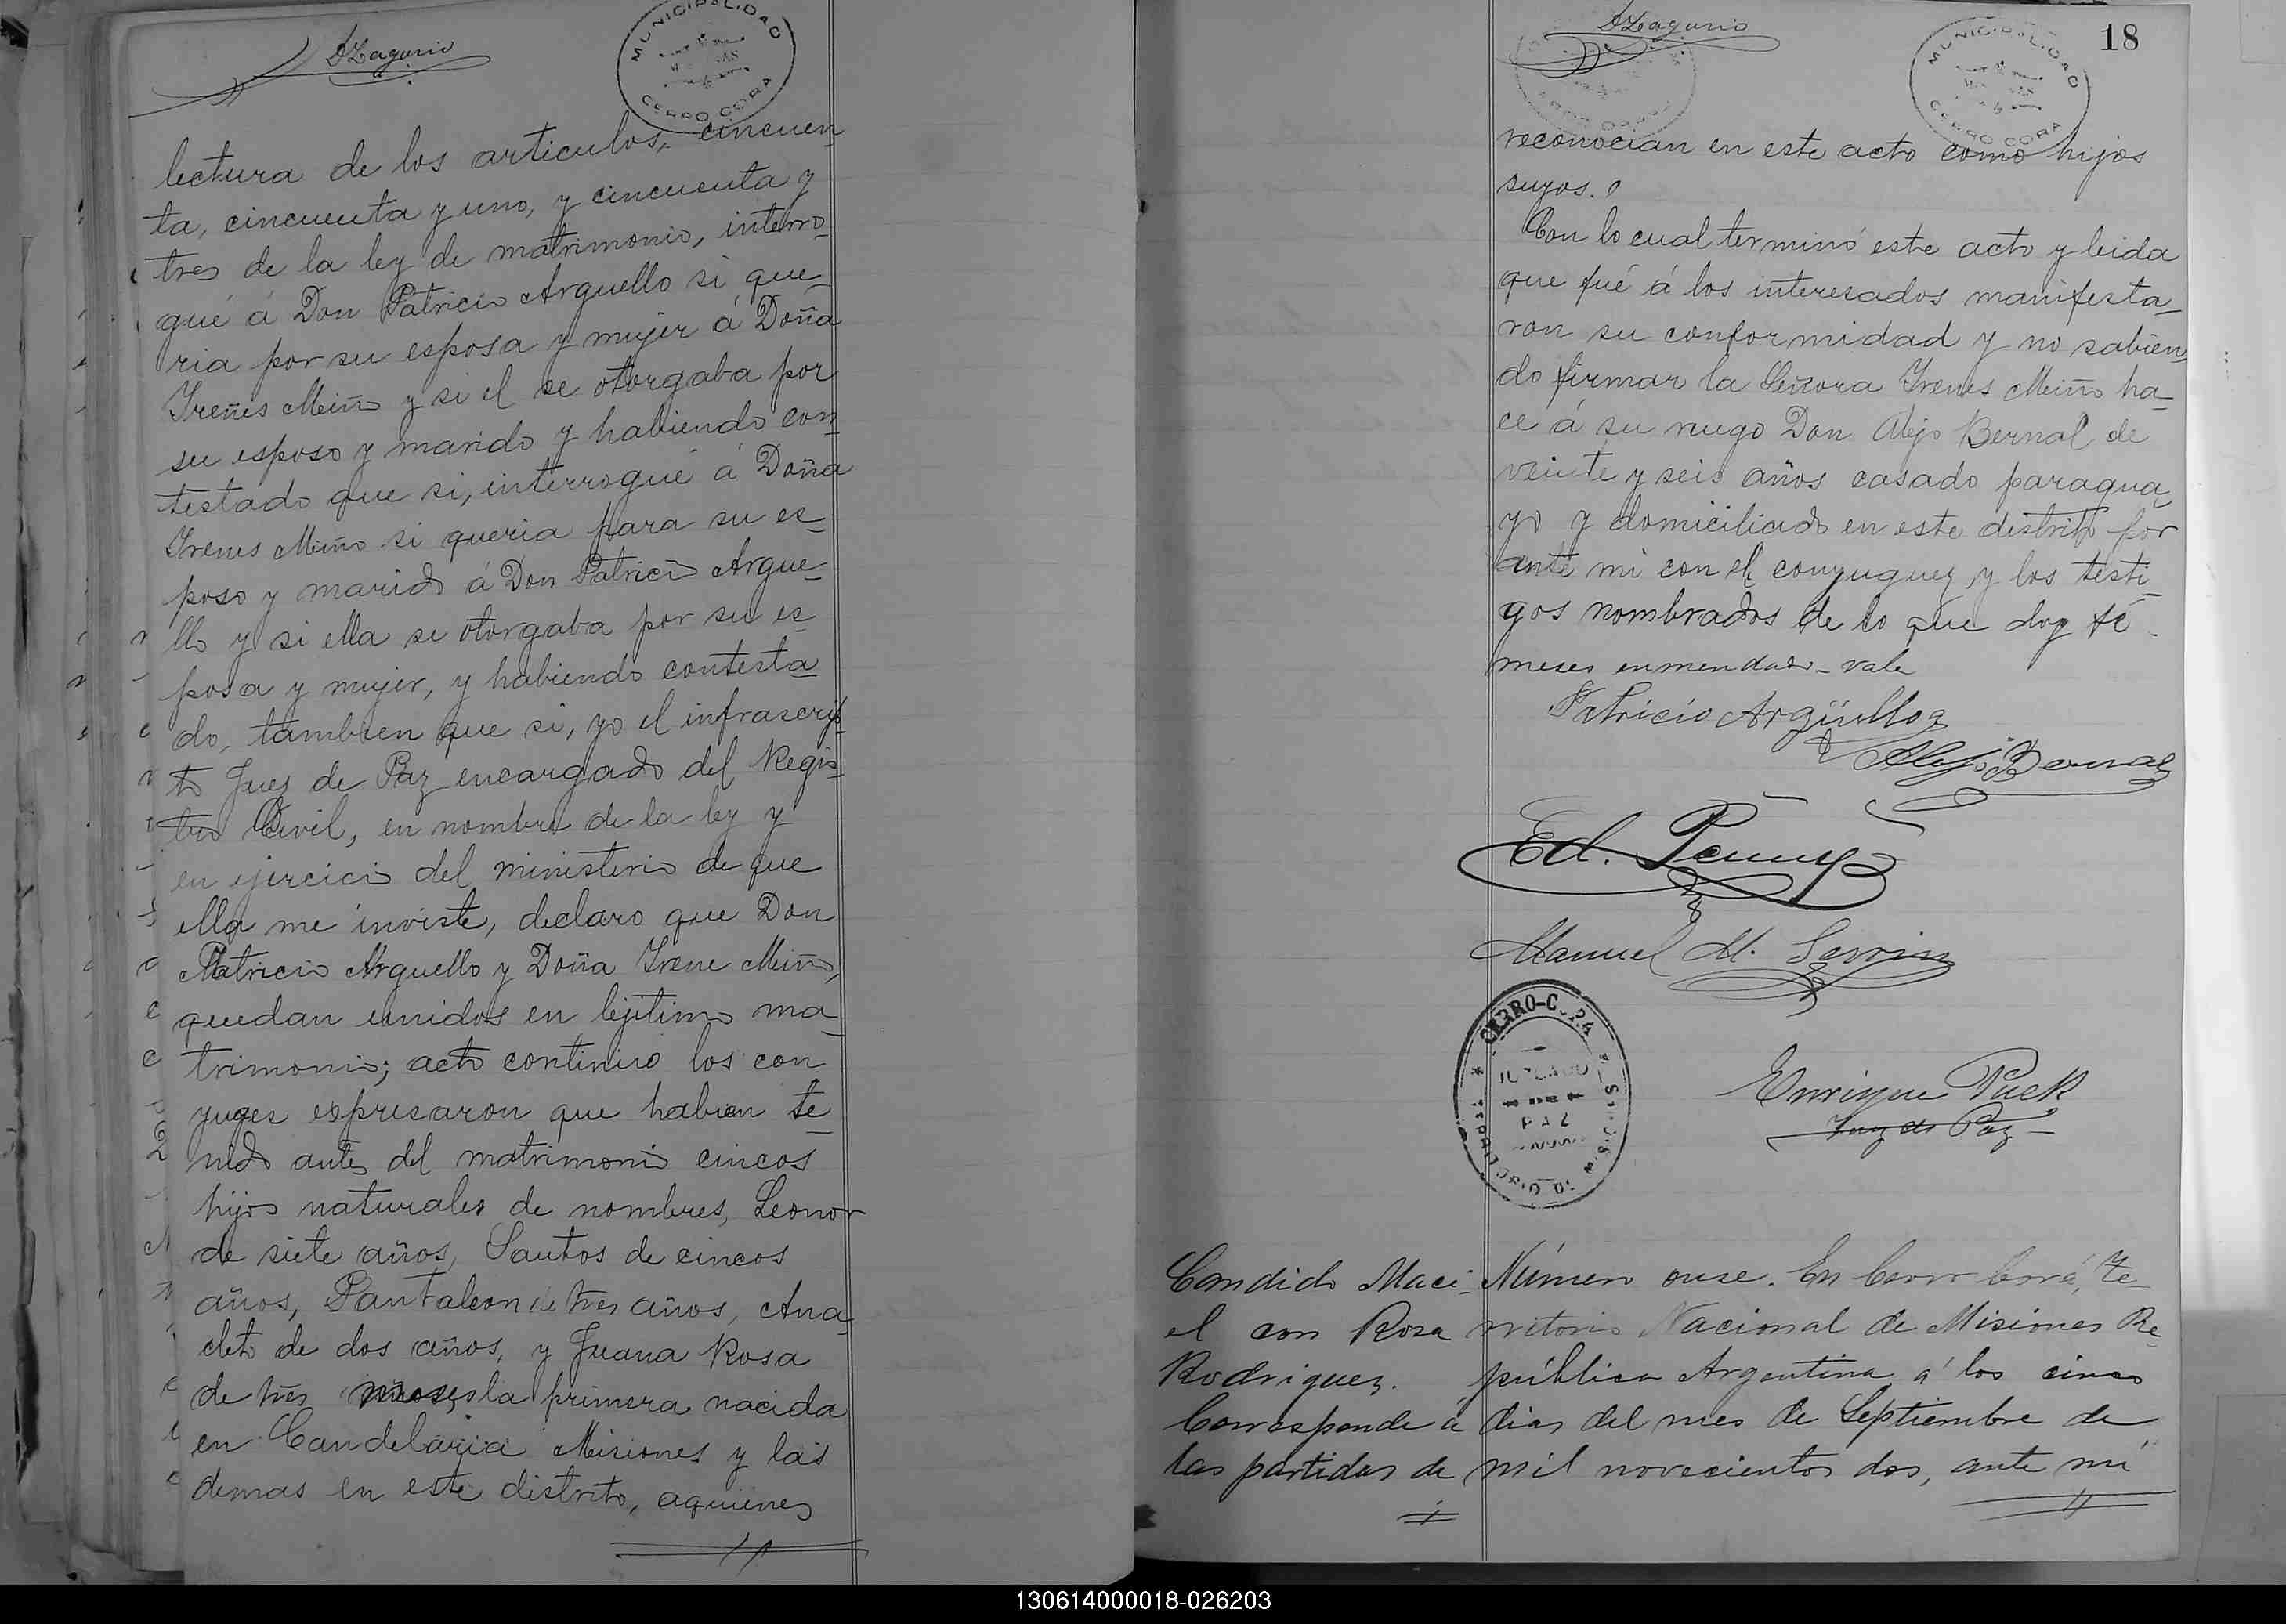 DZagurio
MUNICIPALIDAD
CERRO CORA
lectura de los articulos, cincuen
ta, cincuenta y uno, y cincuenta y
tres de la ley de matrimonio, interro-
gué á Don Patricio Arguello si que-
ria por su esposa y mujer á Doña
Ireñes Meiño y si el se otorgaba por
su esposo y marido y habiendo con-
testado que si, interrogué á Doña
Irenes Meiño si queria para su es-
poso y marido á Don Patricio Argue-
llo y si ella se otorgaba por su es-
posa y mujer, y habiendo contesta
do, tambien que si, yo el infrascrip-
to Juez de Paz encargado del Regis-
tro Civil, en nombre de la ley y
en ejercicio del ministerio de que
ella me inviste, declaro que Don
Patricio Arguello y Doña Irene Meiño,
quedan unidos en lejitimo ma-
trimonio; acto continuo los con
yuges expresaron que habian te-
nido antes del matrimonio cincos
hijos naturales de nombres, Leonor
de siete años, Santos de cincos
años, Pantaleon de tres años, Ana-
cleto de dos años, y Juana Rosa
de tres meses, la primera nacida
en Candelaria Misiones y las
demas en este distrito, aquienes
DZagurio
MUNICIPALIDAD
CERRO CORA
18
reconocian en este acto como hijos
suyos.
Con lo cual terminó este acto y leida
que fué á los interesados manifesta-
ron su conformidad y no sabien-
do firmar la Señora Irenes Meiño ha-
ce á su ruego Don Alejo Bernal de
veinte y seis años casado paragua-
yo y domiciliado en este distrito por
ante mi con el conyuguez y los testi-
gos nombrados de lo que doy fé.
meses enmendado - vale
Patricio Argüello
Alejo Bernal
Ed.
Manuel M.
CERRO-CORA
JUZGADO
DE
PAZ
TERRITORIO DE MISIONES
Enrique Puck
Juez de Paz
Candido Maci-
el con Rosa
Rodriguez.
Corresponde á
las partidas de
Número onse. En Cerro Corá, Te
rritorio Nacional de Misiones Re-
pública Argentina á los cinco
dias del mes de Septiembre de
mil novecientos dos, ante mi
130614000018-026203